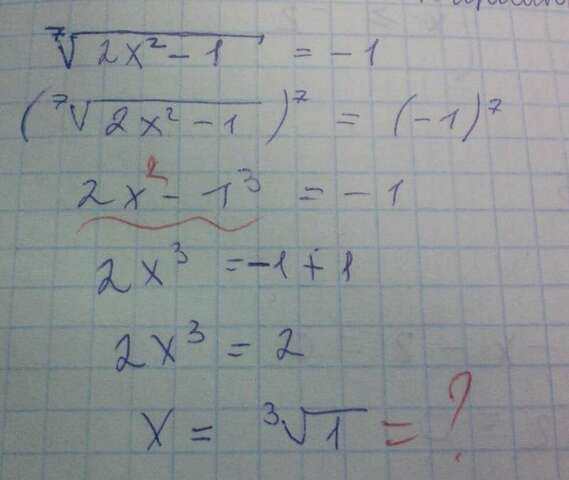 ⁷√(2x² - 1) = -1
(⁷√(2x² - 1))⁷ = (-1)⁷
2x² - 1³ = -1
2x³ = -1 + 1
2x³ = 2
x = ³√1 = ?